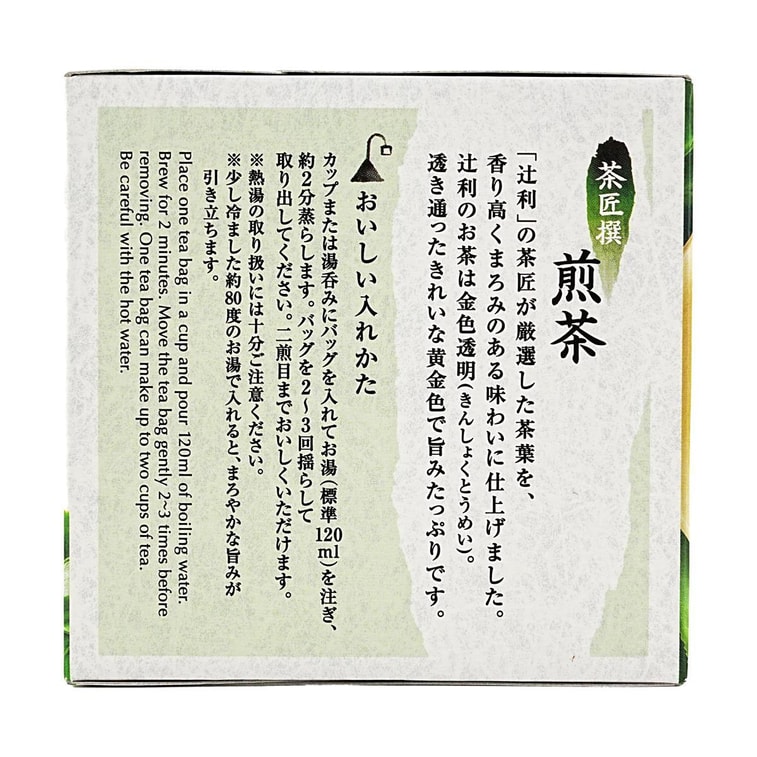 茶匠撰
煎茶
「辻利」の茶匠が厳選した茶葉を、
香り高くまろみのある味わいに仕上げました。
辻利のお茶は金色透明(きんしょくとうめい)。
透き通ったきれいな黄金色で旨みたっぷりです。
おいしい入れかた
カップまたは湯呑みにバッグを入れてお湯(標準120ml)を注ぎ、
約2分蒸らします。バッグを2〜3回揺らして
取り出してください。二煎目までおいしくいただけます。
※熱湯の取り扱いには十分ご注意ください。
※少し冷ました約80度のお湯で入れると、まろやかな旨みが
引き立ちます。
Place one tea bag in a cup and pour 120ml of boiling water.
Brew for 2 minutes. Move the tea bag gently 2~3 times before
removing. One tea bag can make up to two cups of tea.
Be careful with the hot water.